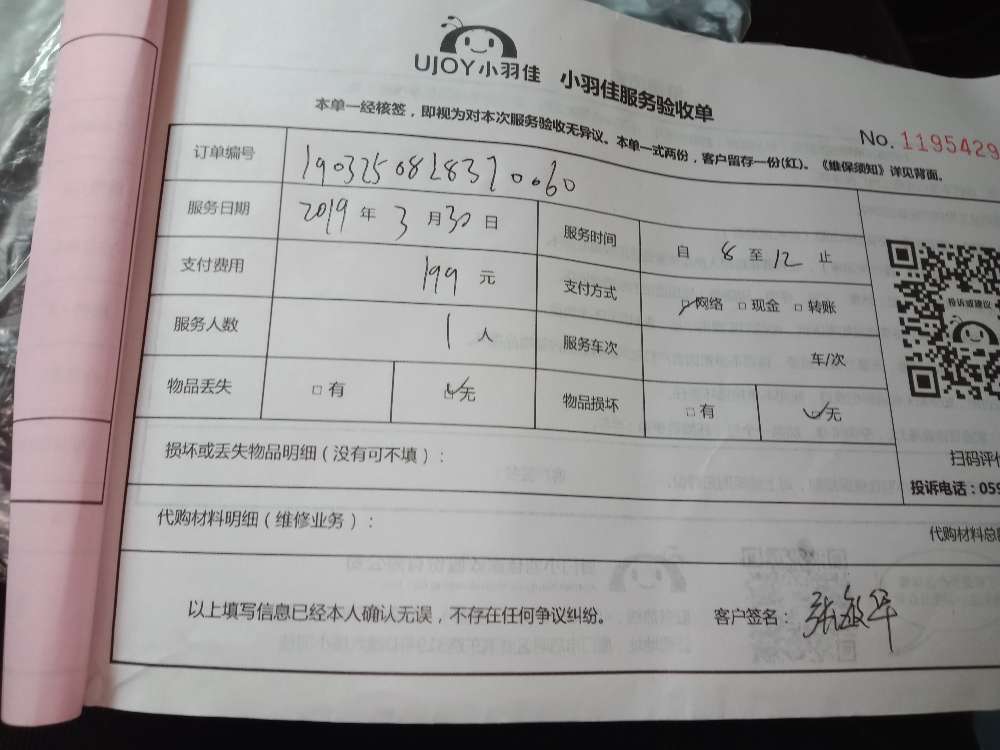 UJOY小羽佳 小羽佳服务验收单
本单一经核签，即视为对本次服务验收无异议。本单一式两份，客户留存一份(红)。《维保须知》详见背面。
No. 1195429
订单编号 1903250828370060
服务日期 2019年3月30日 服务时间 自8至12止
支付费用 199元 支付方式 □网络 □现金 □转账
服务人数 1人 服务车次 车/次
物品丢失 □有 □无 物品损坏 □有 □无
投诉或建议
扫码评价
损坏或丢失物品明细（没有可不填）：
投诉电话：059
代购材料明细（维修业务）：
代购材料总
以上填写信息已经本人确认无误，不存在任何争议纠纷。 客户签名：张敏华